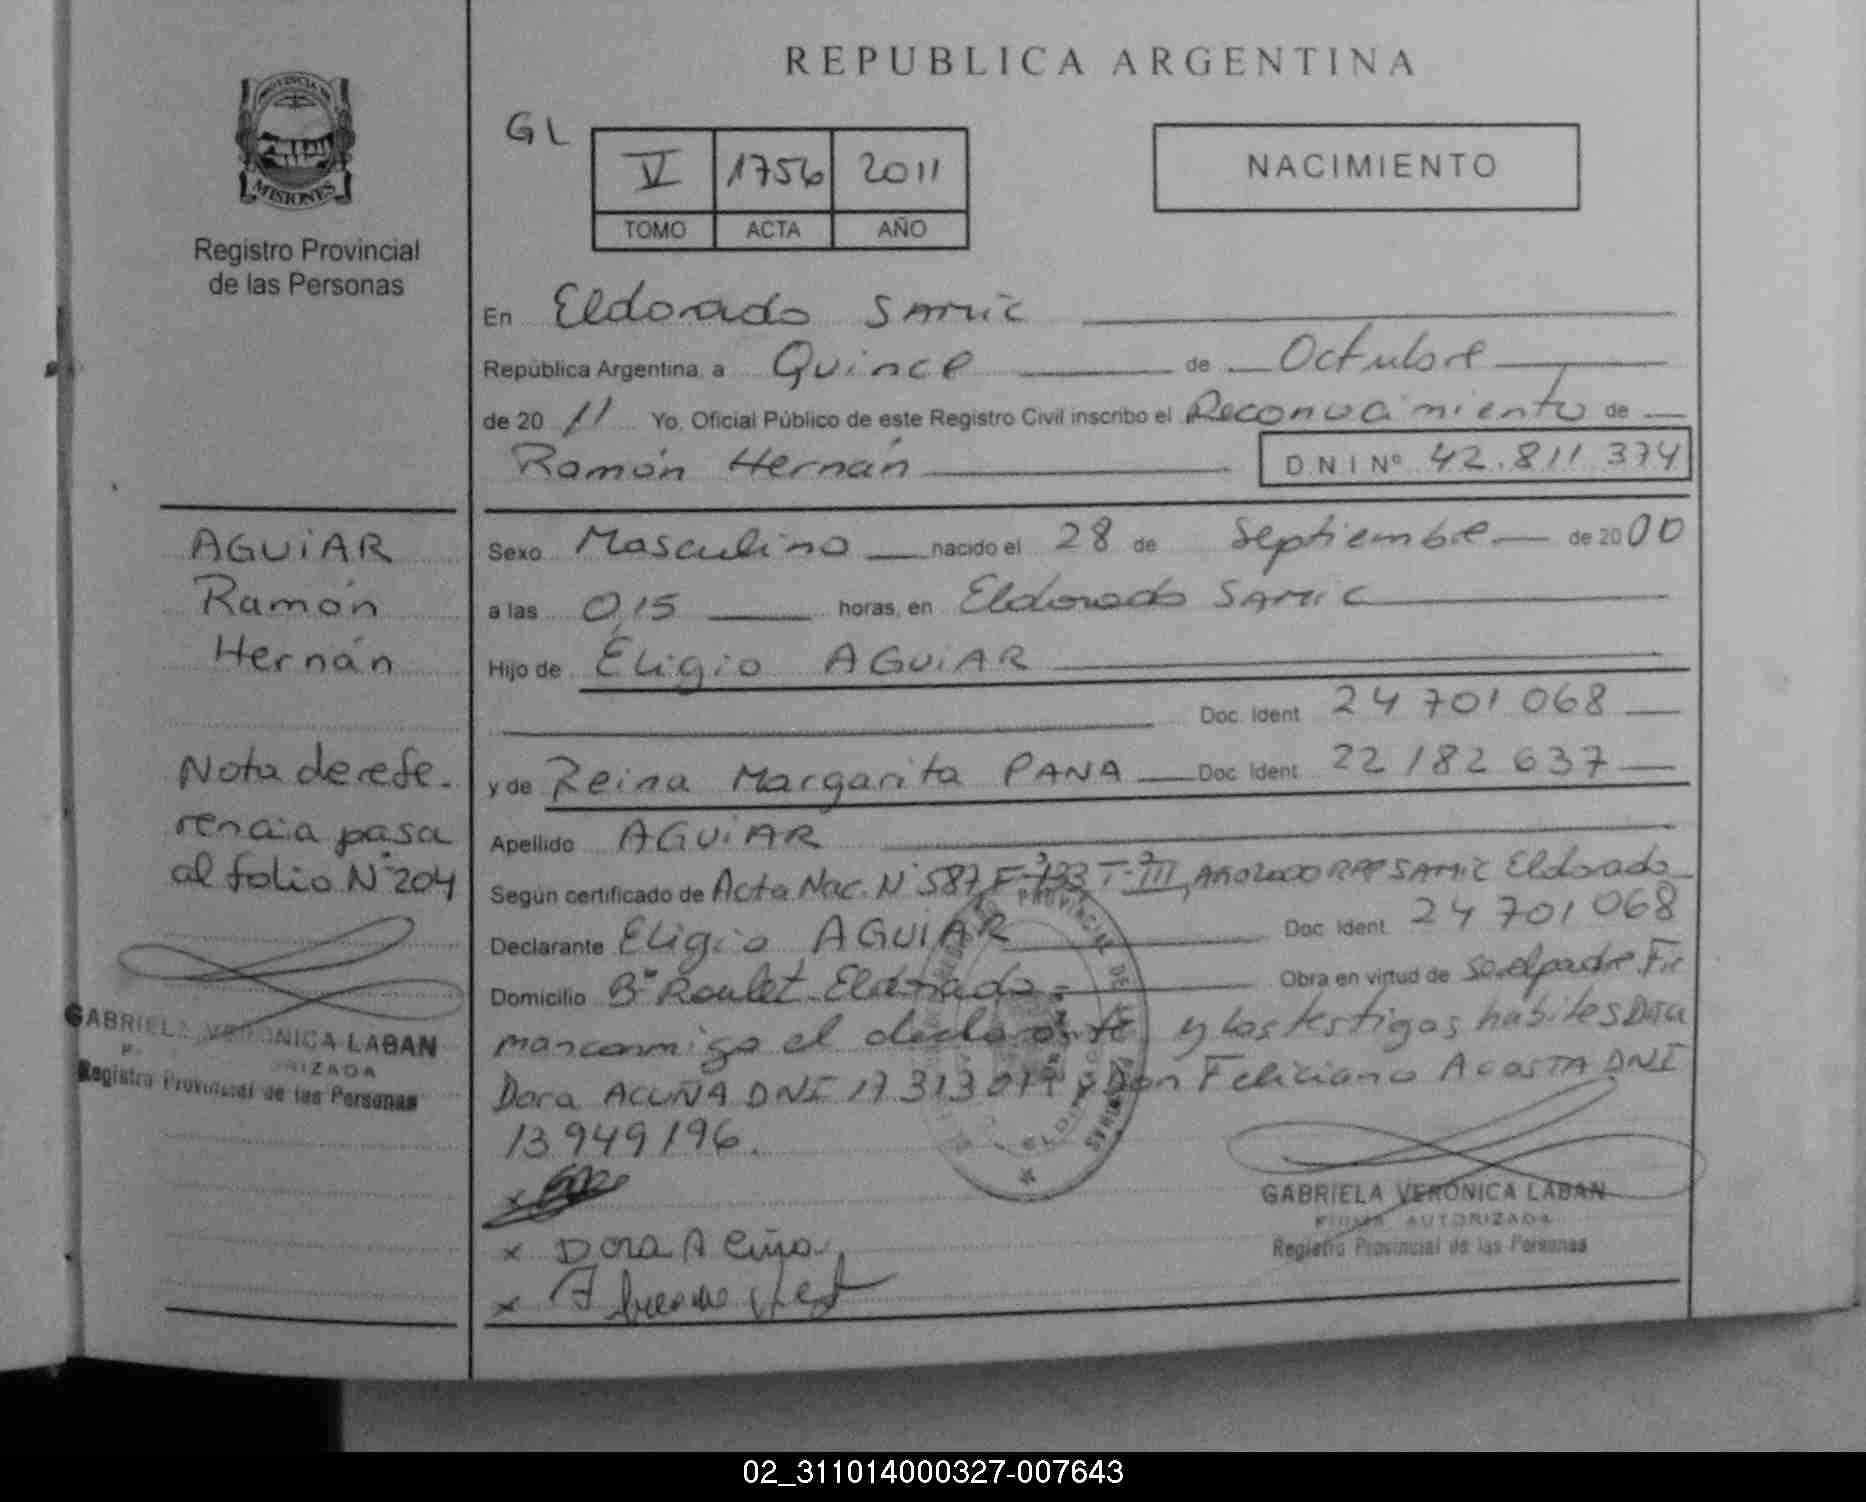 REPUBLICA ARGENTINA
PROVINCIA DE
MISIONES
Registro Provincial
de las Personas
GL
V 1756 2011
TOMO ACTA AÑO
NACIMIENTO
En Eldorado SAMIC
República Argentina, a Quince de Octubre
de 20 11 Yo, Oficial Público de este Registro Civil inscribo el Reconocimiento de
Ramón Hernán DNI Nº 42.811.374
AGUIAR
Ramón
Hernán
Sexo Masculino nacido el 28 de Septiembre de 2000
a las 0,15 horas, en Eldorado SAMIC
Hijo de Eligio AGUIAR
Doc. Ident. 24 701 068
y de Reina Margarita PANA Doc. Ident. 22 182 637
Apellido AGUIAR
Según certificado de Acta Nac. Nº 587 Fº 193 Tº III, RPP SAMIC Eldorado
Declarante Eligio AGUIAR Doc. Ident. 24 701 068
Domicilio Bº Roulet Eldorado Obra en virtud de So. el padre. Fir
man conmigo el declarante y los testigos habiles Doña
Dora ACUÑA DNI 17 313 y Don Feliciano ACOSTA DNI
13 949 196.
x
x Dora Acuña
x
Nota de refe-
rencia pasa
al folio Nº 204
GABRIELA VERONICA LABAN
Registro Provincial de las Personas
GABRIELA VERONICA LABAN
FIRMA AUTORIZADA
Registro Provincial de las Personas
02_311014000327-007643